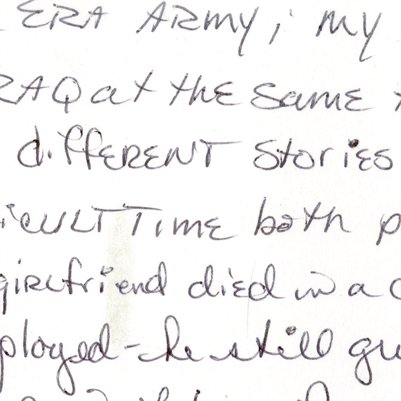 ERA ARMY; my
RAQ at the same
different stories
icult time both p
girlfriend died in a c
ployed - he still gu